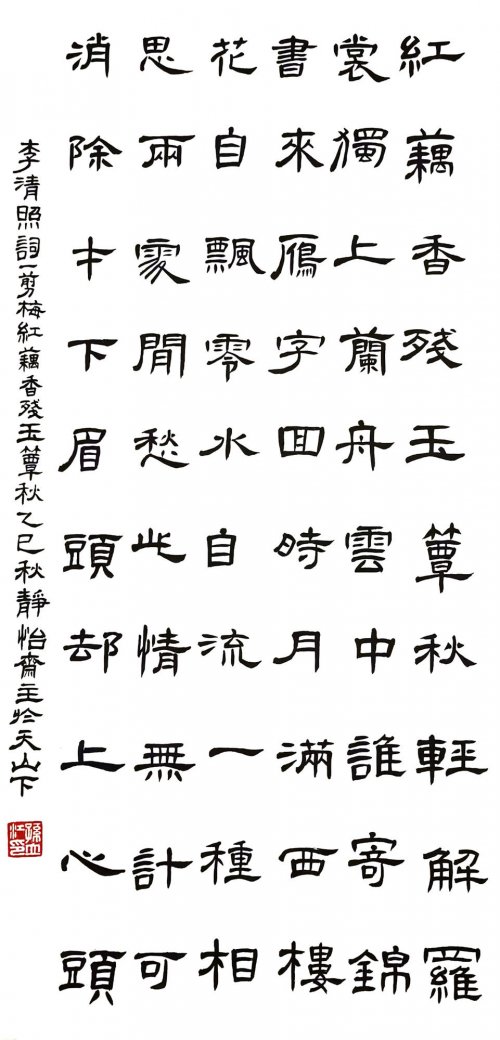 紅藕香殘玉簟秋輕解羅
裳獨上蘭舟雲中誰寄錦
書來鴈字回時月滿西樓
花自飄零水自流一種相
思兩處閒愁此情無計可
消除才下眉頭却上心頭
李清照詞一剪梅紅藕香殘玉簟秋乙巳秋靜怡齋主於天山下